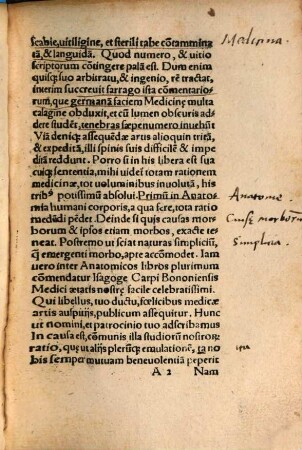 scabie, uitiligine, et sterili tabe cōtammina
tā, & languidā. Quod numero, & uitio
scriptorum cōtingere palā est. Dum enim
quisq; suo arbitratu, & ingenio, rē tractat,
interim succreuit farrago ista cōmentario-
rum, que germanā faciem Medicinę multa
caligine obduxit, et cū lumen obscuris ad
dere studēt, tenebras sæpenumero inuehūt
Viā deniq; assequēdæ artis alioquin tritā,
& expeditā, illi spinis suis difficilē & im
pediā reddunt. Porro si in his libera est sua
cuiq; sententia, mihi uidet totam rationem
medicinæ, tot uoluminibus inuolutā, his
tribꝰ potissimū absolui. Primū in Anatos
mia humani corporis, a qua fere, tota ratio
medēdi pēdet. Deinde si quis causas morbo
rum & ipsos etiam morbos, exacte tēne
neat. Postremo ut sciat naturas simpliciū,
q̄ emergenti morbo, accōmodet. Iam ue
ro inter Anatomicos libros plurimum
cōmendatur Isagoge Carpi Bononiensis
Medici ætatis nostrę facile celebratissimi.
Qui libellus, tuo ductu, fœlicibus medicæ
artis auspicijs, publicum assequitur. Hunc
ut nomini, et patrocinio tuo adscribamus
In causa est, cōmunis illa studiorū nostrorū
ratio, quę ut alijs plerūq; emulationē, ita no
bis semper mutuam beneuolentiā peperit
A 2 Nam
Medicina
Anatome
Causę morborū
Simplicia